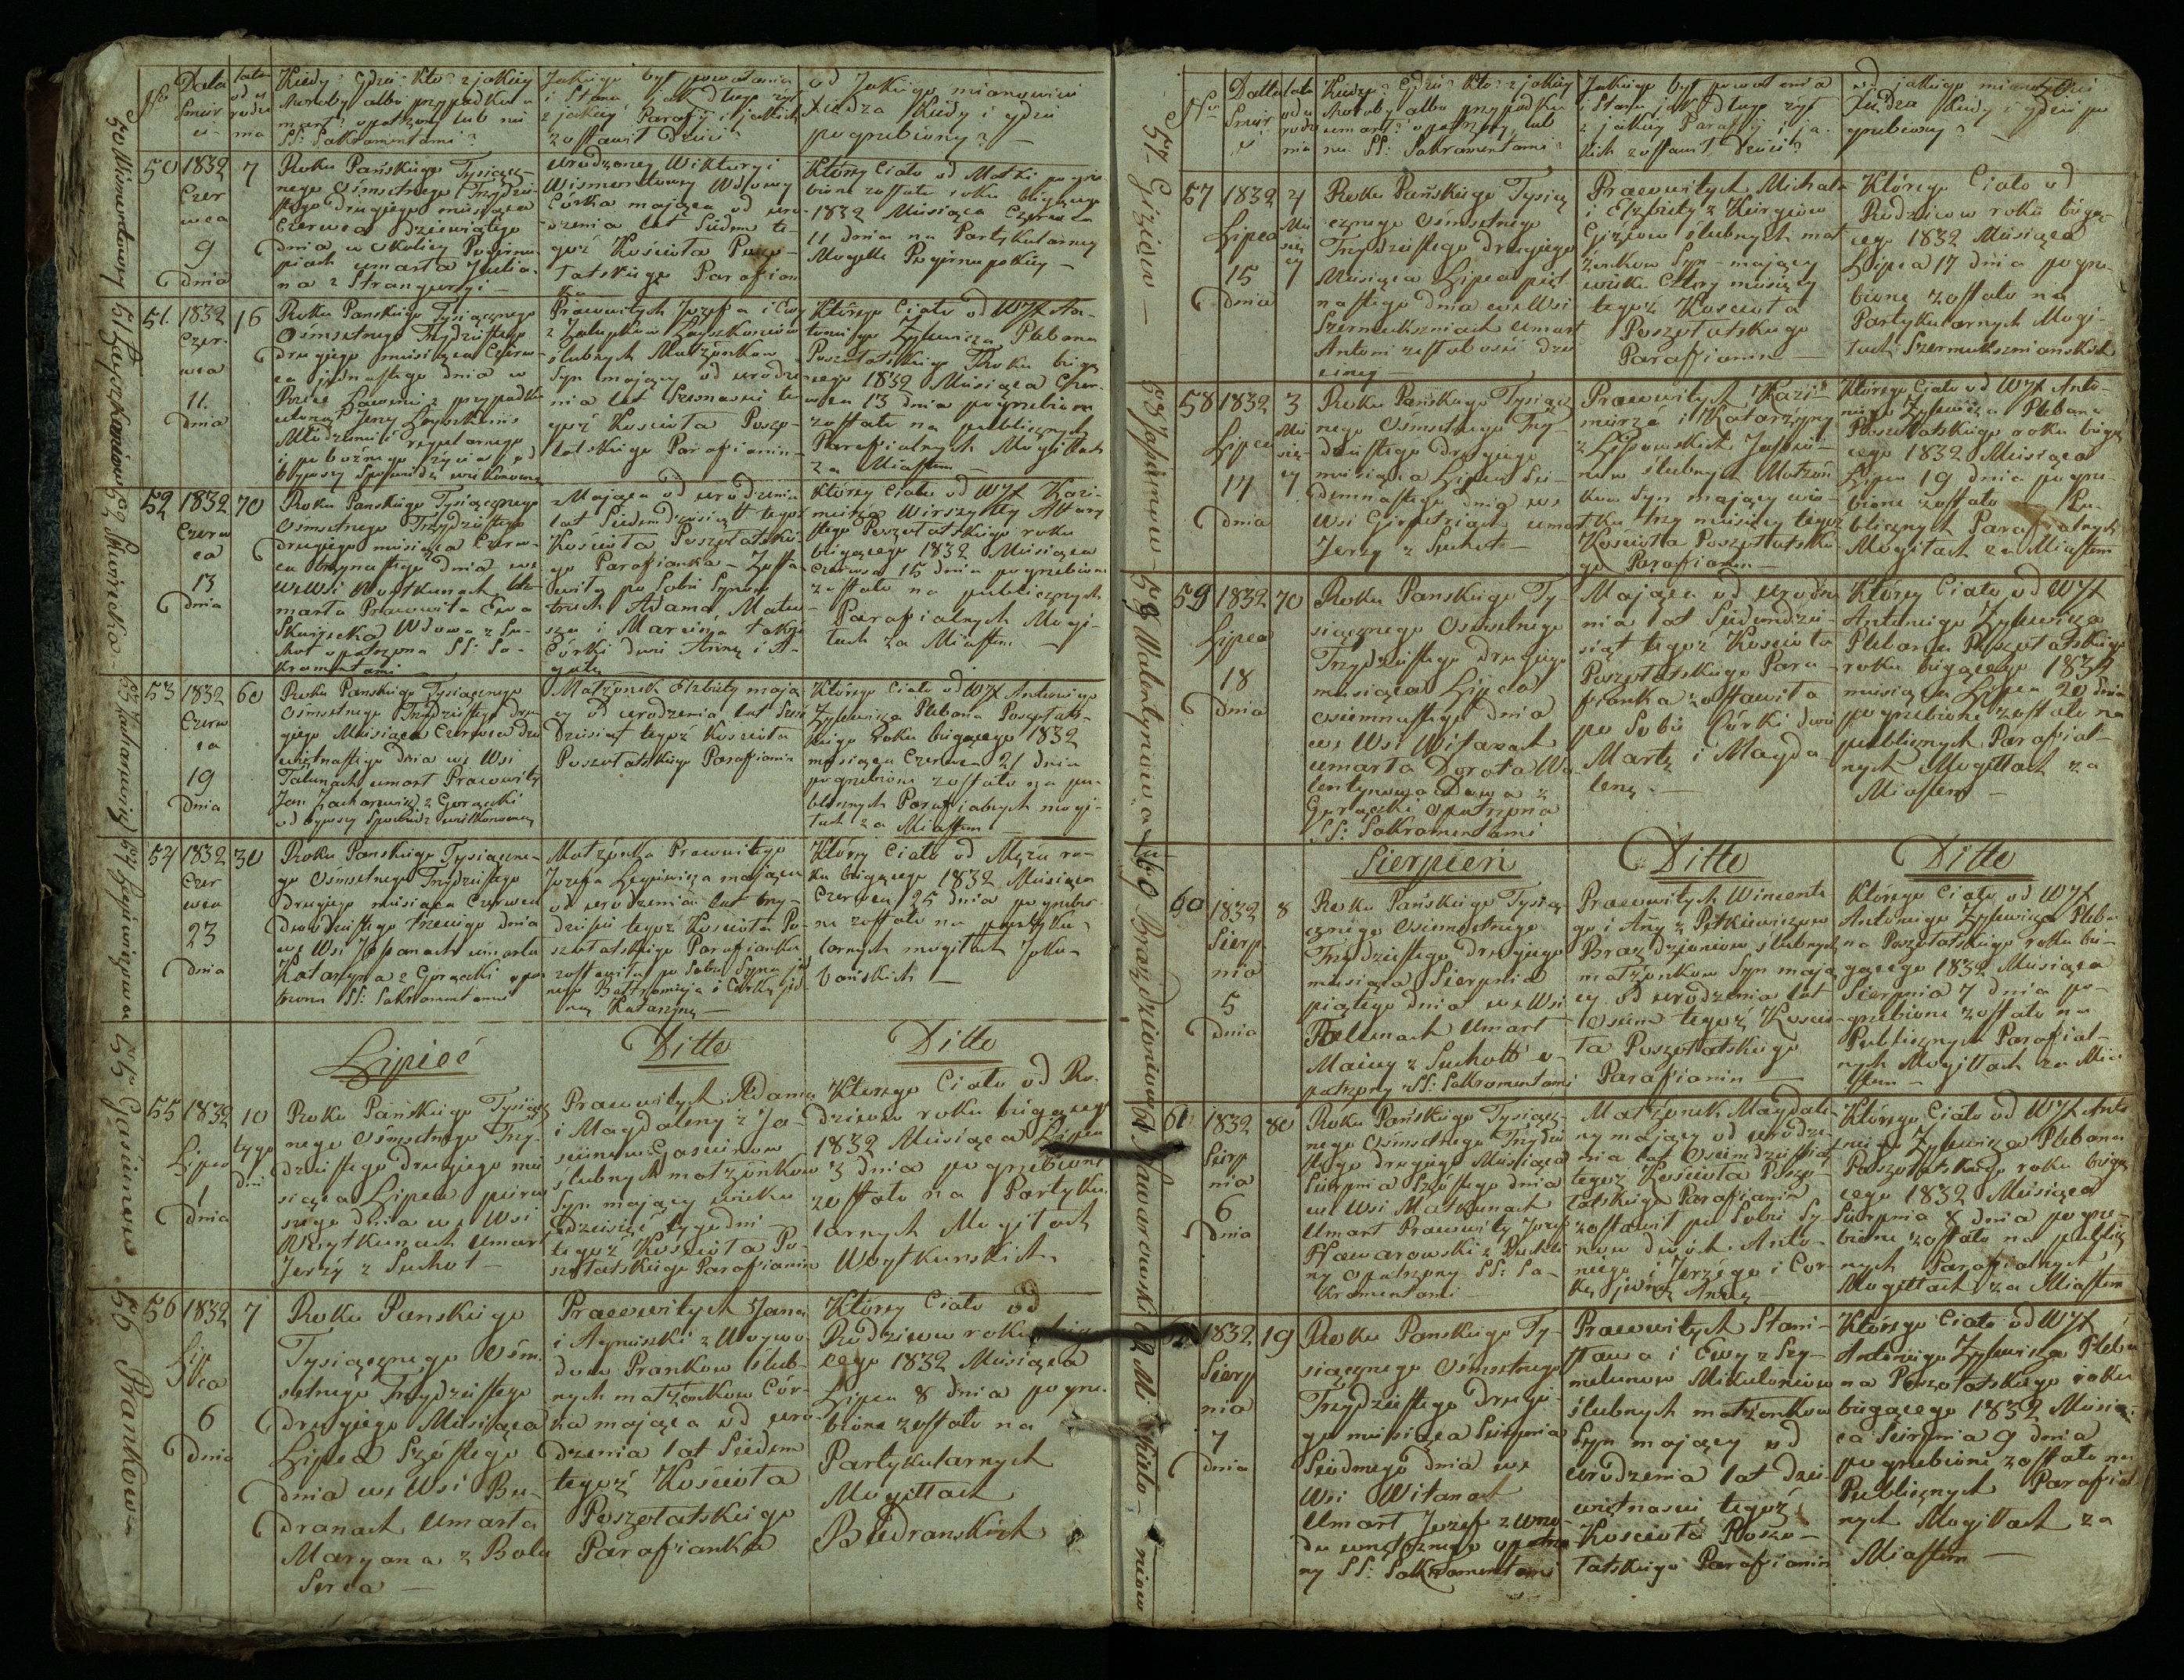 Nro
Data
Śmier
ci
lata
od u
rodze
nia
Kiedy? Gdzie? Kto? z jakiéy
choroby albo przypadku u
marł? opatrzony lub nie
SS: Sakramentami?
Jakiego był powołania
i Stanu, jak długo żył
z jakiéy Parafij i jakich
zostawił Dzieci?
od Jakiego mianowicie
Xiędza Kiedy i gdzie
pogrzebiony?
50 Wismontowny
50
1832
Czer
wca
9
dnia
7
Roku Pańskiego Tysiącz-
nego Ośmsetnego Trzydzie-
stego drugiego miesiąca
Czerwca dziewiątego
dnia w okolicy Pogirnu-
piach umarła Julia-
na z Strangurji —
urodzoney Wiktoryi
Wismontowny Wdowy
Córka mająca od uro-
dzenia lat Siedm te-
goż Kościoła Poszo-
łatskiego Parafian
ka
Któréy Ciało od Matki pogrze
bione zostało roku bieżącego
1832 Miesiąca Czerwca
11 dnia na Partykularnéy
Mogille Pogirnupskiéy —
51 Łayszkoniów
51.
1832
Czer-
wca
11.
dnia
16
Roku Pańskiego Tysiącznego
Ośmsetnego Trzydziestego
drugiego miesiąca Czerw-
ca jednastego dnia w
Rzece Ławenie z przypadku
utonął Jerzy
Młodzieniec regularnego
i pobożnego życia od
bywszy Spowiedź wielkonocną
Prawowitych Jozefa i Ewy
z Łayszkoniow
ślubnych Małżonkow
Syn mający od urodze-
nia lat Szesnaście te
goż Kościoła Poszo-
łatskiego Parafianin —
Którego Ciało od WJX An-
toniego Żylewicza Plebana
Poszołatskiego Roku bieżą
cego 1832 Miesiąca Czer-
wca 13 dnia pogrzebione
zostało na publicznych
Parafialnych Mogiłach
za Miastem —
52
52
1832
Czerw
ca
13
dnia
70
Roku Pańskiego Tysiącznego
Ośmsetnego Trzydziestego
drugiego miesiąca Czerw-
ca trzynastego dnia we
we Wsi Woytkunach u-
marła Prawowita Ewa
Skurzecka Wdowa z Su-
chot opatrzona SS: Sa-
kramentami —
Mająca od urodzenia
lat Siedmdziesiąt tegoż
Kościoła Poszołatskie-
go Parafianka — Zosta-
wiła po Sobie Synow
trzech Adama, Mateu-
sza i Marcina także
Córki dwie Annę i A-
gatę
Któréy Ciało od WJX Kazi-
mierza Wirszyłły Altary
stego Poszołatskiego roku
bieżącego 1832 Miesiąca
Czerwca 15 dnia pogrzebione
zostało na publicznych
Parafialnych Mogi-
łach za Miastem —
53 Zacharewicz
53
1832
Czerw
ca
19
dnia
60
Roku Pańskiego Tysiącznego
Ośmsetnego Trzydziestego dru
giego Miesiąca Czerwca dzie
więtnastego dnia we Wsi
Talunach umarł Prawowity
Jan Zacharewicz z Gorączki
odbywszy Spowiedź wielkonocną
Małżonek Elzbiety mają
cy od urodzenia lat Sześć
Dziesiąt tegoż Kościoła
Poszołatskiego Parafianin
Którego Ciało od WJX Antoniego
Żylewicza Plebana Poszołats-
kiego roku bieżącego 1832
miesiąca Czerwca 21 dnia
pogrzebione zostało na pu-
blicznych Parafialnych mogi-
łach za Miastem —
54
54
1832
Czer
wca
23
dnia
30
Roku Pańskiego Tysiączne-
go Ośmsetnego Trzydziestego
drugiego miesiąca Czerwca
dwódziestego trzeciego dnia
we Wsi umarła
Katarzyna z Gorączki opa
trzona SS: Sakramentami
Małżonka Prawowitego
Jozefa mająca
od urodzenia lat trzy-
dzieści tegoż Kościoła Po-
szołatskiego Parafianka
zostawiła po Sobie Syna jed
nego Bałtromieja i Corkę jed
nę Katarzynę —
Któréy Ciało od Męża ro-
ku bieżącego 1832 Miesiąca
Czerwca 25 dnia pogrzebio
ne zostało na partyku-
larnych mogiłach —
Lipiec
Ditto
Ditto
55 Gasiunow
55
1832
Lipca
1
dnia
10
tygo
dni
Roku Pańskiego Tysiącz
nego Ośmsetnego Trzy-
dziestego drugiego mie
siąca Lipca pierw
szego dnia we Wsi
Woytkunach umarł
Jerzy z Suchot —
Prawowitych Adama
i Magdaleny z
Gasiunow
ślubnych małżonkow
Syn mający wieku
dziesięć tygodni
tegoż Kościoła Po-
szołatskiego Parafianin
Ktorego Ciało od Ro-
dzicow roku bieżącego
1832 Miesiąca Lipca
3 dnia pogrzebione
zostało na Partyku-
larnych Mogiłach
Woytkunskich
56 Prankowna
56
1832
Lip
ca
6
dnia
7
Roku Pańskiego
Tysiącznego Ośm-
setnego Trzydziestego
drugiego Miesiąca
Lipca Szóstego
dnia we Wsi Bu-
dranach umarła
Maryana z Bolu
Serca —
Prawowitych Jana
i Agnieszki z Woywo-
dow Prankow ślub-
nych małżonkow Cór-
ka mająca od uro-
dzenia lat Siedem
tegoż Kościoła
Poszołatskiego
Parafianka
Któréy Ciało od
Rodzicow roku bieżą
cego 1832 Miesiąca
Lipca 8 dnia pogrze-
bione zostało na
Partykularnych
Mogiłłach
Budranskich
Nro
Data
Śmier
ci
lata
od u
rodze
nia
Kiedy? Gdzie? Kto? z jakiéy
choroby albo przypadku
umarł? opatrzony lub
nie SS: Sakramentami?
Jakiego był powołania
i Stanu jak długo żył
z jakiéy Parafij i ja-
kich zostawił Dzieci?
od jakiego mianowicie
Xiędza Kiedy i gdzie po
grzebiony?
57 Giziow —
57
1832
Lipca
15
dnia
4
Mie
się
cy
Roku Pańskiego Tysią
cznego Ośmsetnego
Trzydziestego drugiego
Miesiąca Lipca pięt
nastego dnia we Wsi
Szermukszniach umarł
Antoni z słabości dzie
cinnéy —
Prawowitych Michała
i Elzbiety z Kiergiow
Giziow ślubnych mał
żonkow Syn — mający
wieku Cztéry miesięcy
tegoż Kościoła
Poszołatskiego
Parafianin —
Którego Ciało od
Rodzicow roku bieżą-
cego 1832 Miesiąca
Lipca 17 dnia pogrze-
bione zostało na
Partykularnych Mogi-
łach Szermuksznianskich
58
58
1832
Lipca
17
dnia
3
Mie
się
cy
Roku Pańskiego Tysiącz
nego Ośmsetnego Trzy-
dziestego drugiego
miesiąca Lipca Sie-
demnastego dnia we
Wsi umarł
Jerzy z Suchot —
Prawowitych Kazi-
mierza i Katarzyny
z
ślubnych Małżon
kow Syn mający wie-
ku trzy miesięcy tegoż
Kościoła Poszołatskie
go Parafianin —
Którego Ciało od WJX Anto-
niego Żylewicza Plebana
Poszołatskiego roku bieżą
cego 1832 Miesiąca
Lipca 19 dnia pogrze-
bione zostało na Pu-
blicznych Parafialnych
Mogiłach za Miastem
59 Walentynowa
59
1832
Lipca
18
dnia
70
Roku Pańskiego Ty-
siącznego Ośmsetnego
Trzydziestego drugiego
miesiąca Lipca
osiemnastego dnia
we Wsi Witanach
umarła Dorota Wa-
lentynowa Wdowa z
Gorączki opatrzona
SS: Sakramentami
Mająca od urodze
nia lat Siedmdzie-
siąt tegoż Kościoła
Poszołatskiego Para-
fianka zostawiła
po Sobie Córki dwie
Martę i Magda-
lenę. —
Któréy Ciało od WJX
Antoniego Żylewicza
Plebana Poszołatskiego
roku bieżącego 1832
miesiąca Lipca 20 dnia
pogrzebione zostało na
publicznych Parafial-
nych Mogiłłach za
Miastem —
Sierpień
Ditto
Ditto
60 Brazdzioniow
60
1832
Sierp
nia
5
dnia
8
Roku Pańskiego Tysią
cznego Osiemsetnego
Trzydziestego drugiego
miesiąca Sierpnia
piątego dnia we Wsi
umarł
Maciey z Suchott o-
patrzony SS: Sakramentami
Prawowitych Wincente
go i Anny z Petkiewiczow
Brazdzioniow ślubnych
małżonkow Syn mają
cy od urodzenia lat
osiem tegoż Kościo-
ła Poszołatskiego
Parafianin —
Którego Ciało od WJX
Antoniego Żylewicza Pleba
na Poszołatskiego roku bie-
żącego 1832 Miesiąca
Sierpnia 7 dnia po-
grzebione zostało na
Publicznych Parafial-
nych Mogiłłach za Mia
stem —
61
61
1832
Sierp
nia
6
dnia
80
Roku Pańskiego Tysiącz-
nego Ośmsetnego Trzydzie
stego drugiego Miesiąca
Sierpnia Szóstego dnia
we Wsi Matkunach
umarł Prawowity Jozef
z Puchli
ny opatrzony SS: Sa-
kramentami —
Małżonek Magdale
ny mający od urodze-
nia lat Osiemdziesiąt
tegoż Kościoła Poszo-
łatskiego Parafianin
zostawił po Sobie Sy-
now dwóch Anto-
niego i Jerzego i Cor-
kę jednę Annę —
Którego Ciało od WJX Anto
niego Żylewicza Plebana
Poszołatskiego roku bieżą
cego 1832 Miesiąca
Sierpnia 8 dnia pogrze-
bione zostało na publicz
nych Parafialnych
Mogiłłach za Miastem
1832
Sierp
nia
7
dnia
19
Roku Pańskiego Ty-
siącznego Ośmsetnego
Trzydziestego drugie-
go miesiąca Sierpnia
Siódmego dnia we
Wsi Witanach
umarł Jozef z wrzo-
du wnętrznego opatrzo
ny SS: Sakramentami
Prawowitych Stani-
sława i Ewy z Szy-
Mikuloniow
ślubnych małżonkow
Syn mający od
urodzenia lat dzie-
więtnaście tegoż
Kościoła Poszo-
łatskiego Parafianin
Którego Ciało od WJX
Antoniego Żylewicza Pleba
na Poszołatskiego roku
bieżącego 1832 Miesią-
ca Sierpnia 9 dnia
pogrzebione zostało na
Publicznych Parafial
nych Mogiłłach za
Miastem —